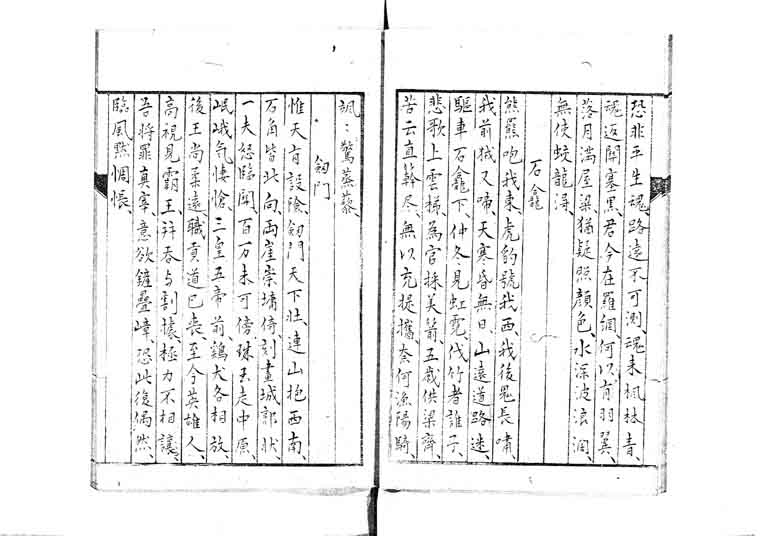 恐非平生魂、路遠不可測、魂来楓林青、
魂返関塞黒、君今在羅網、何以有羽翼、
落月満屋梁、猶疑照顔色、水深波浪闊、
無使蛟龍得、
石龕
熊羆咆我東、虎豹號我西、我後鬼長嘯、
我前狨又啼、天寒昏無日、山遠道路迷、
驅車石龕下、仲冬見虹霓、伐竹者誰子、
悲歌上雲梯、為官採美箭、五歳供梁齊、
苦云直簳尽、無以充提攜、奈何漁陽騎、
颯〻驚蒸藜、
劔門
惟天有設險、劔門天下壮、連山抱西南、
石角皆北向、両崖崇墉倚、刻畫城郭状、
一夫怒臨関、百万未可傍、珠玉走中原、
岷峨気悽愴、三皇五帝前、鶏犬各相放、
後王尚柔遠、職貢道已喪、至今英雄人、
高視見霸王、并吞与割據、極力不相讓、
吾将罪真宰、意欲鏟疊嶂、恐此復偶然、
臨風黙惆悵、